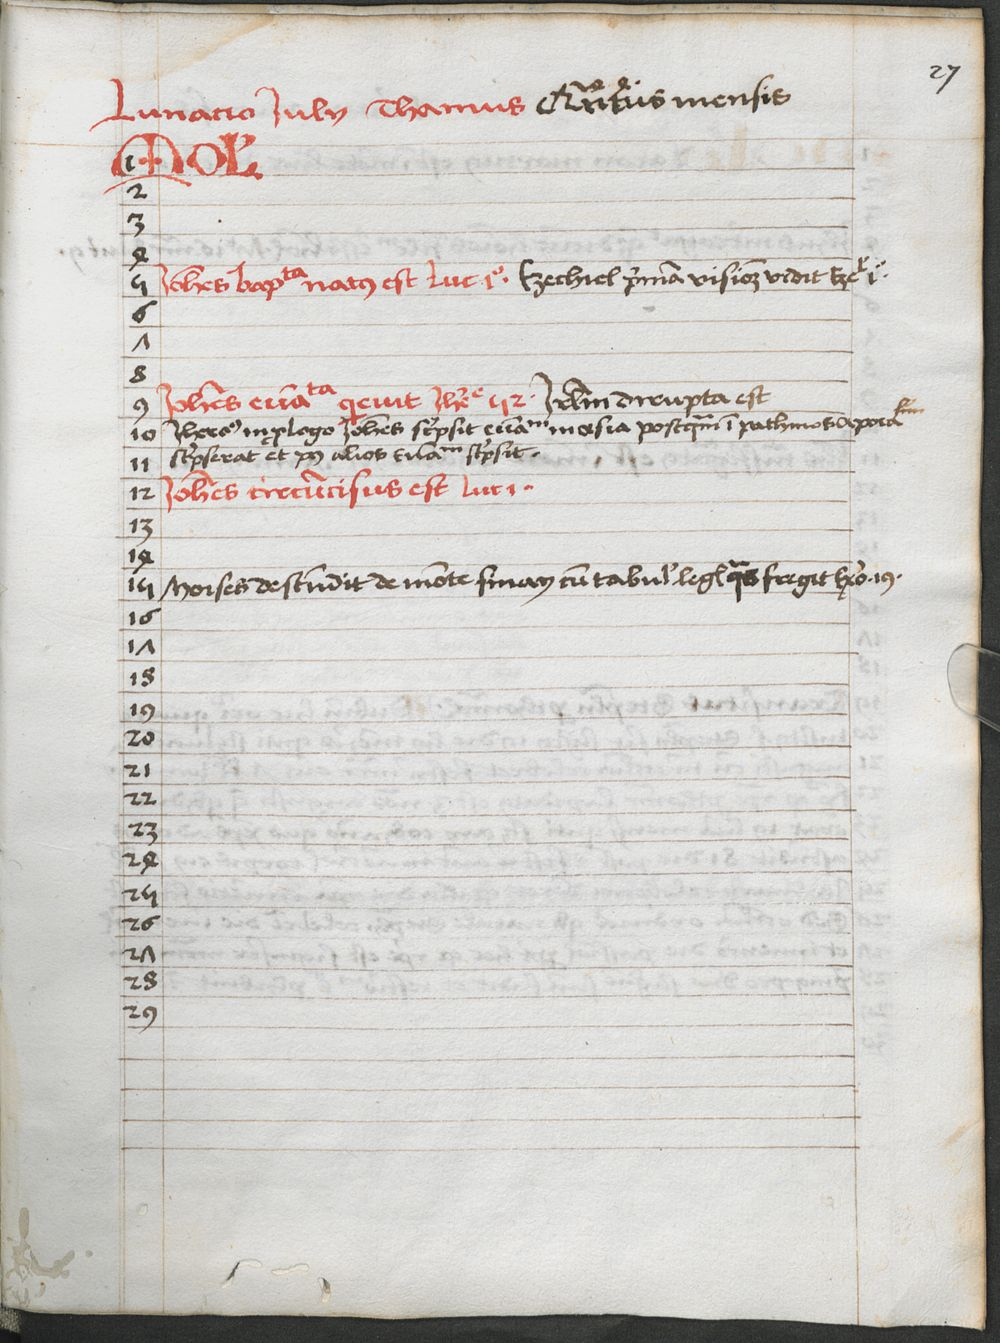 27
Lunatio July Thamus Quartus mensis
1 MOL
2
3
4
5 Johēs bapᵗᵃ natꝰ est Luc 1º. Ezechiel p̄mā visionē vidit Eze 1º.
6
7
8
9 Johēs euāᵗᵃ q̄euit Jhere 52. Jrlm̄ dirupta est
10 Jhero' in plogo Johēs sc̄psit euāᵐ in asia postq̄m ī pathmos apocaˡⁱᵐ
11 sc̄pserat et pꝰ alios euāᵐ sc̄psit.
12 Johēs circūcisus est Luc 1.
13
14
15 Moises descēndit de mōte sinay cū tabul' leg' q̄s fregit Exo. 19.
16
17
18
19
20
21
22
23
24
25
26
27
28
29